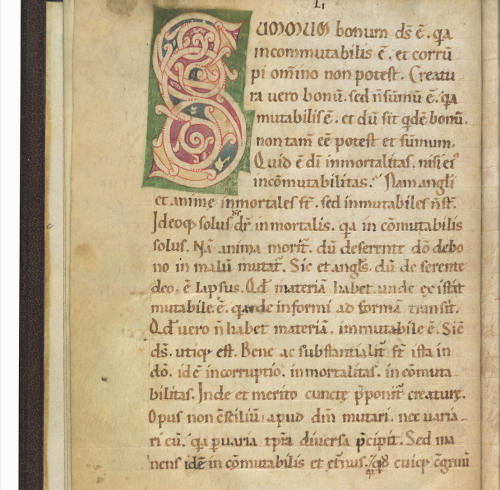 I,
SUMMUM bonum ds ē. qa
incommutabilis ē. et corrū
pi om̄ino non potest. Creatu
ra vero bonū. sed n̄ sūmū ē. qa
mutabilis ē. et dū sit qdē bonū.
non tam̄ eē potest et sūmum.
Quid ē dī inmortalitas. nisi ei'
incōmutabilitas. Nam angli
et anime inmortales st̄. sed inmutabiles n̄ st̄.
Ideoq; solus ds dr̄ inmortalis. qa incōmutabilis
solus. Nā anima morit̄. dū deserente dō de bo
no in malū mutat̄. Sic et angls. dū deserente
deo. ē lapsus. Qd̄ materiā habet unde existit
mutabile ē. de informi ad formā transit.
Qd̄ vero n̄ habet materiā. inmutabile ē. Sic̄
ds̄. utiq; est. Bene ac substantialit̄ st̄ ista in
dō. idē incorruptio. inmortalitas. incōmuta
bilitas. Inde et merito cunctę p̄ponit̄ creaturę.
Opus non cōsiliū apud dm̄ mutari. nec varia
ri eū. qa p varia tpra diversa p̄cipit. Sed ma
nens idē incōmutabilis et et̄nus. qd cuiq; cōgruū